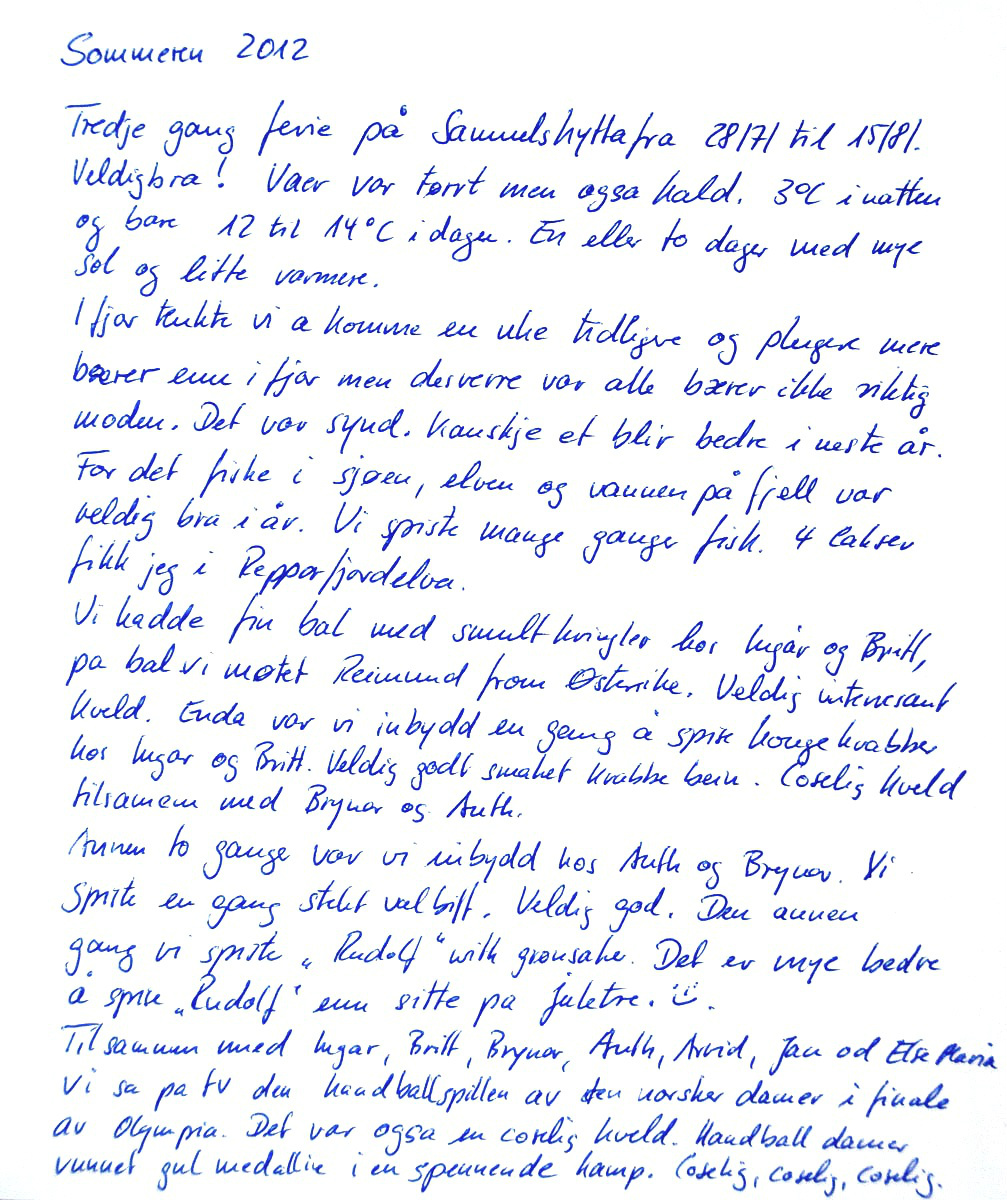 Sommeren 2012
Tredje gang ferie på Samuelshytta fra 28/7/ til 15/8/.
Veldig bra! Vaer var tørrt men ogsa kald. 3°C i natten
og bare 12 til 14°C i dagen. En eller to dager med mye
sol og litte varmere.
I fjor tenkte vi a komme en uke tidligre og plugere mere
bærer enn i fjor men desverre var alle bærer ikke riktig
moden. Det var synd. Kanskje et blir bedre i neste år.
For det fiske i sjøen, elven og vannen på fjell var
veldig bra i år. Vi spiste mange ganger fisk. 4 lakser
fikk jeg i Repparfjordelva.
Vi hadde fin bal med smult kringler hos Ingår og Britt,
pa bal vi møtet Reimund from Østerrike. Veldig interresant
kveld. Enda var vi inbydd en gang å spise kongekrabber
hos Ingar og Britt. Veldig godt smaket krabbe bein. Coselig kveld
tilsamem med Brynar og Auth.
Annen to gange var vi inbydd hos Auth og Brynar. Vi
spiste en gang stekt valbiff. Veldig god. Den annen
gang vi spiste „Rudolf“ with gronsaker. Det er mye bedre
å spise „Rudolf“ enn sitte pa juletre. ☺.
Tilsammen med Ingar, Britt, Brynar, Auth, Arvid, Jan od Else Maria
vi sa pa tv den handballspillen av den norsker damer i finale
av Olympia. Det var ogsa en coselig kveld. Handball damer
vunnet gul medallie i en spennende kamp. Coselig, coselig, coselig.